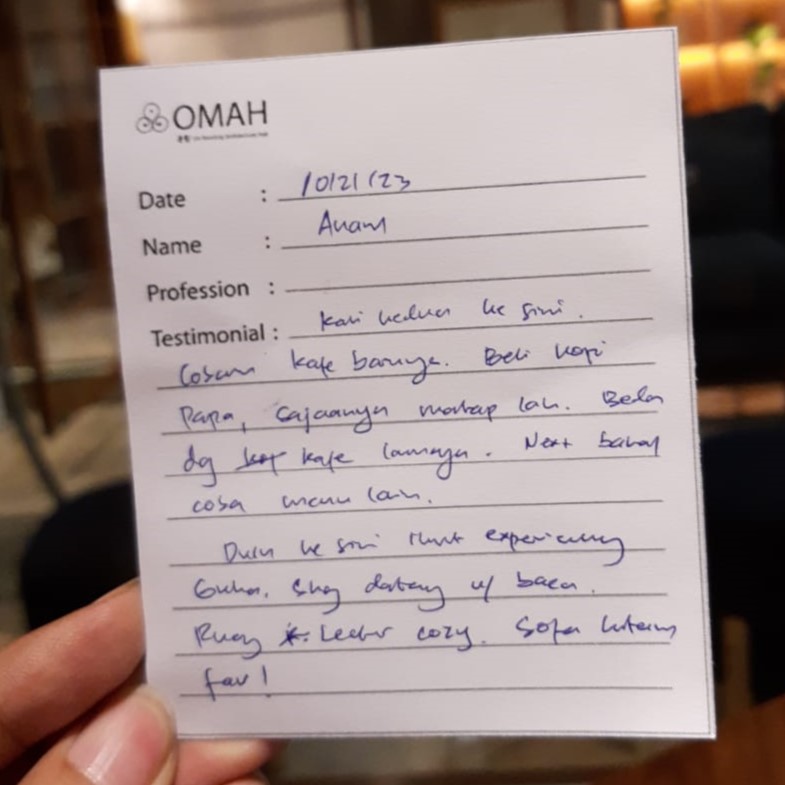 OMAH
Date : 10/21/23
Name : Anam
Profession :
Testimonial : Kali kedua ke sini.
Cobain kafe barunya. Beli kopi
Papa, sajaanya mantap lah. Beda
dg kafe lamanya. Next bakal
coba menu lain.
Dulu ke sini ikut experiencing
Guha. Skg datang u/ baca.
Ruang lecker cozy. Sofa hitam
fav!